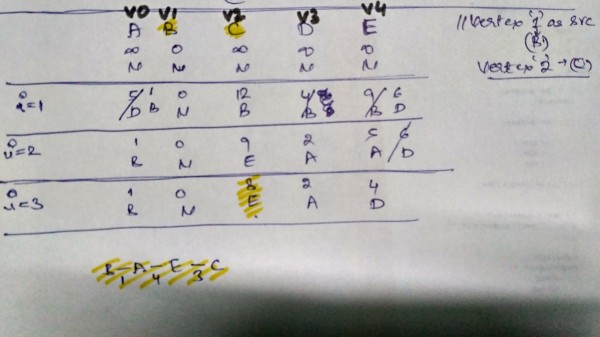 V0 V1 V2 V3 V4
A B C D E //Vertex '1' as src
∞ 0 ∞ ∞ ∞ (B)
N N N N N Vertex '2' → (C)
i=1 5/ 1 0 12 4/ 9/ 6
D B N B B B D
i=2 1 0 9 2 5/ 6
B N E A A D
i=3 1 0 8 2 4
B N E A D
B-A-E-C
1 4 3